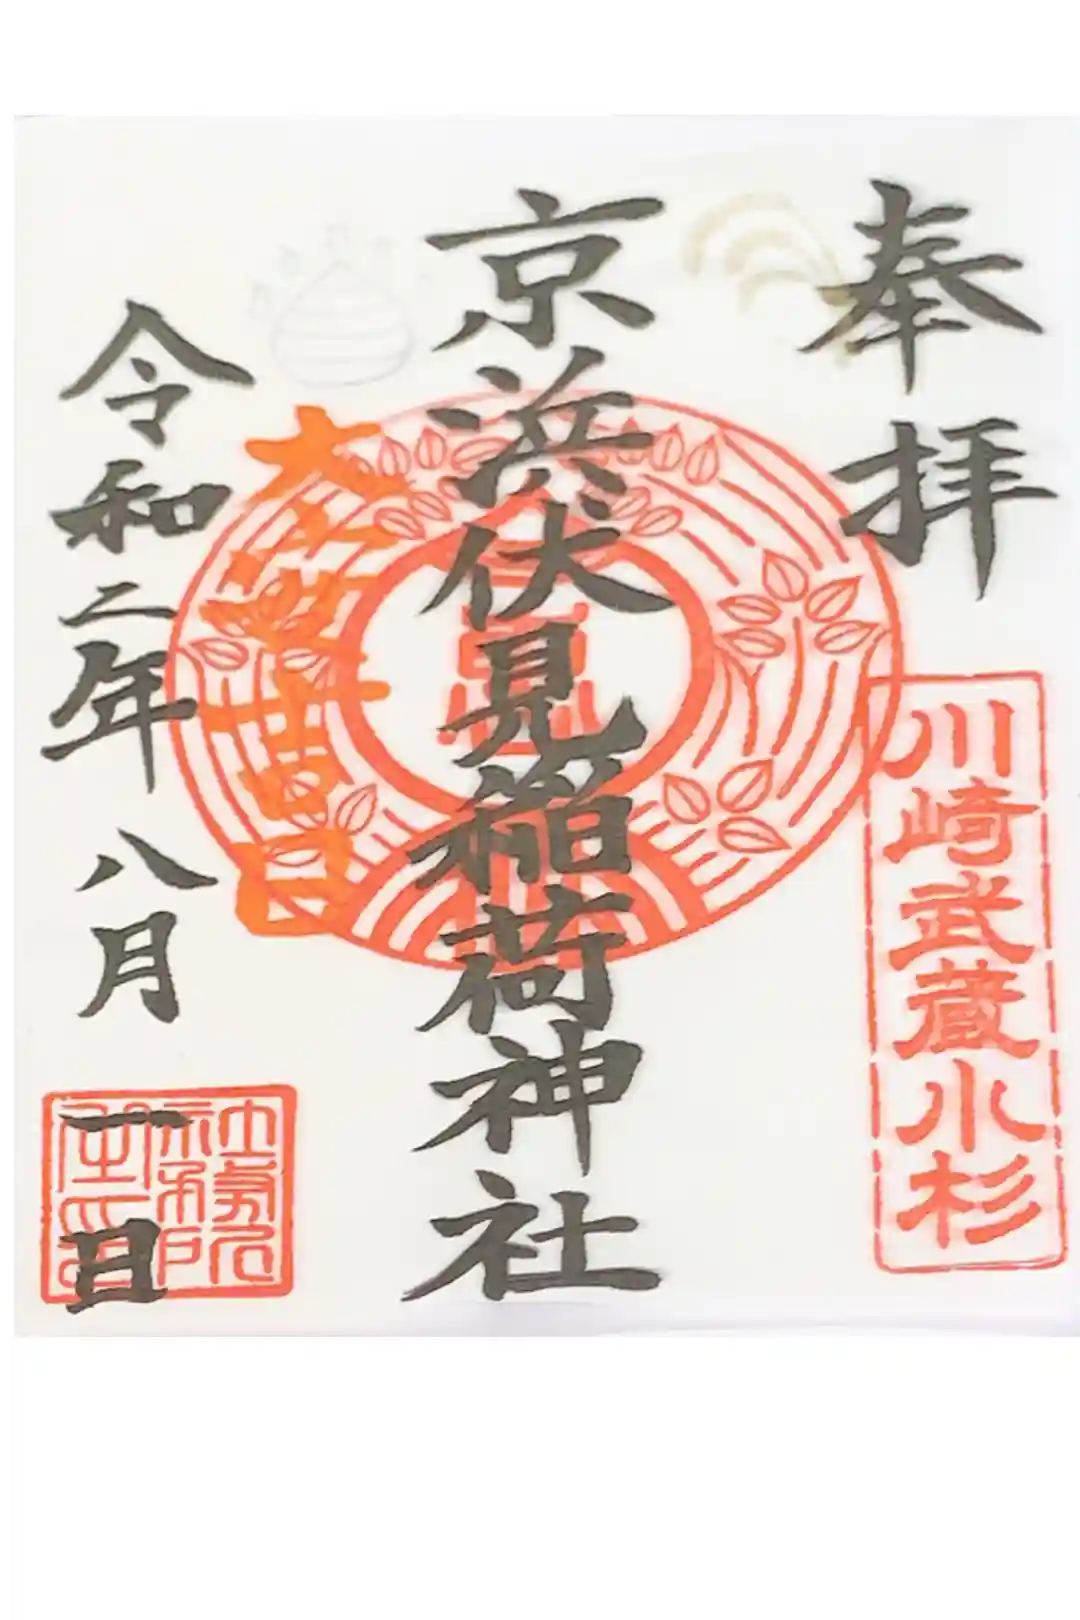 奉拝
川崎武蔵小杉
京浜伏見稲荷神社
大安吉日
令和二年八月一日